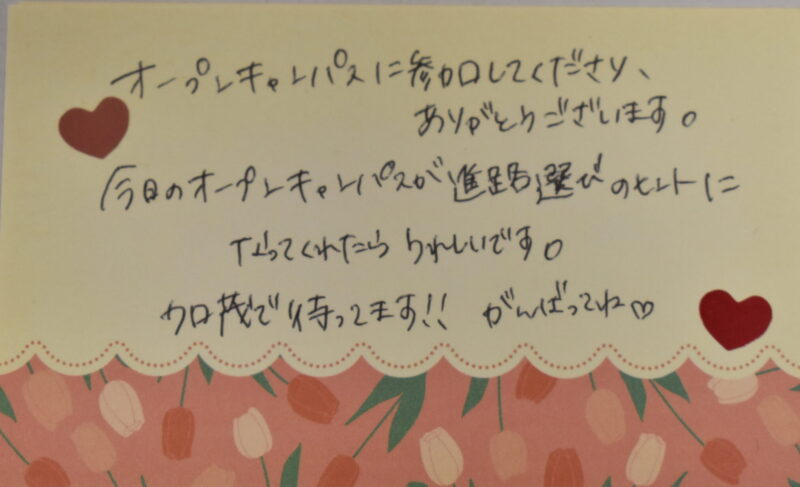 オープンキャンパスに参加してくださり、
ありがとうございます。
今日のオープンキャンパスが進路選びのヒントに
なってくれたらうれしいです。
加茂で待ってます!! がんばってね♡